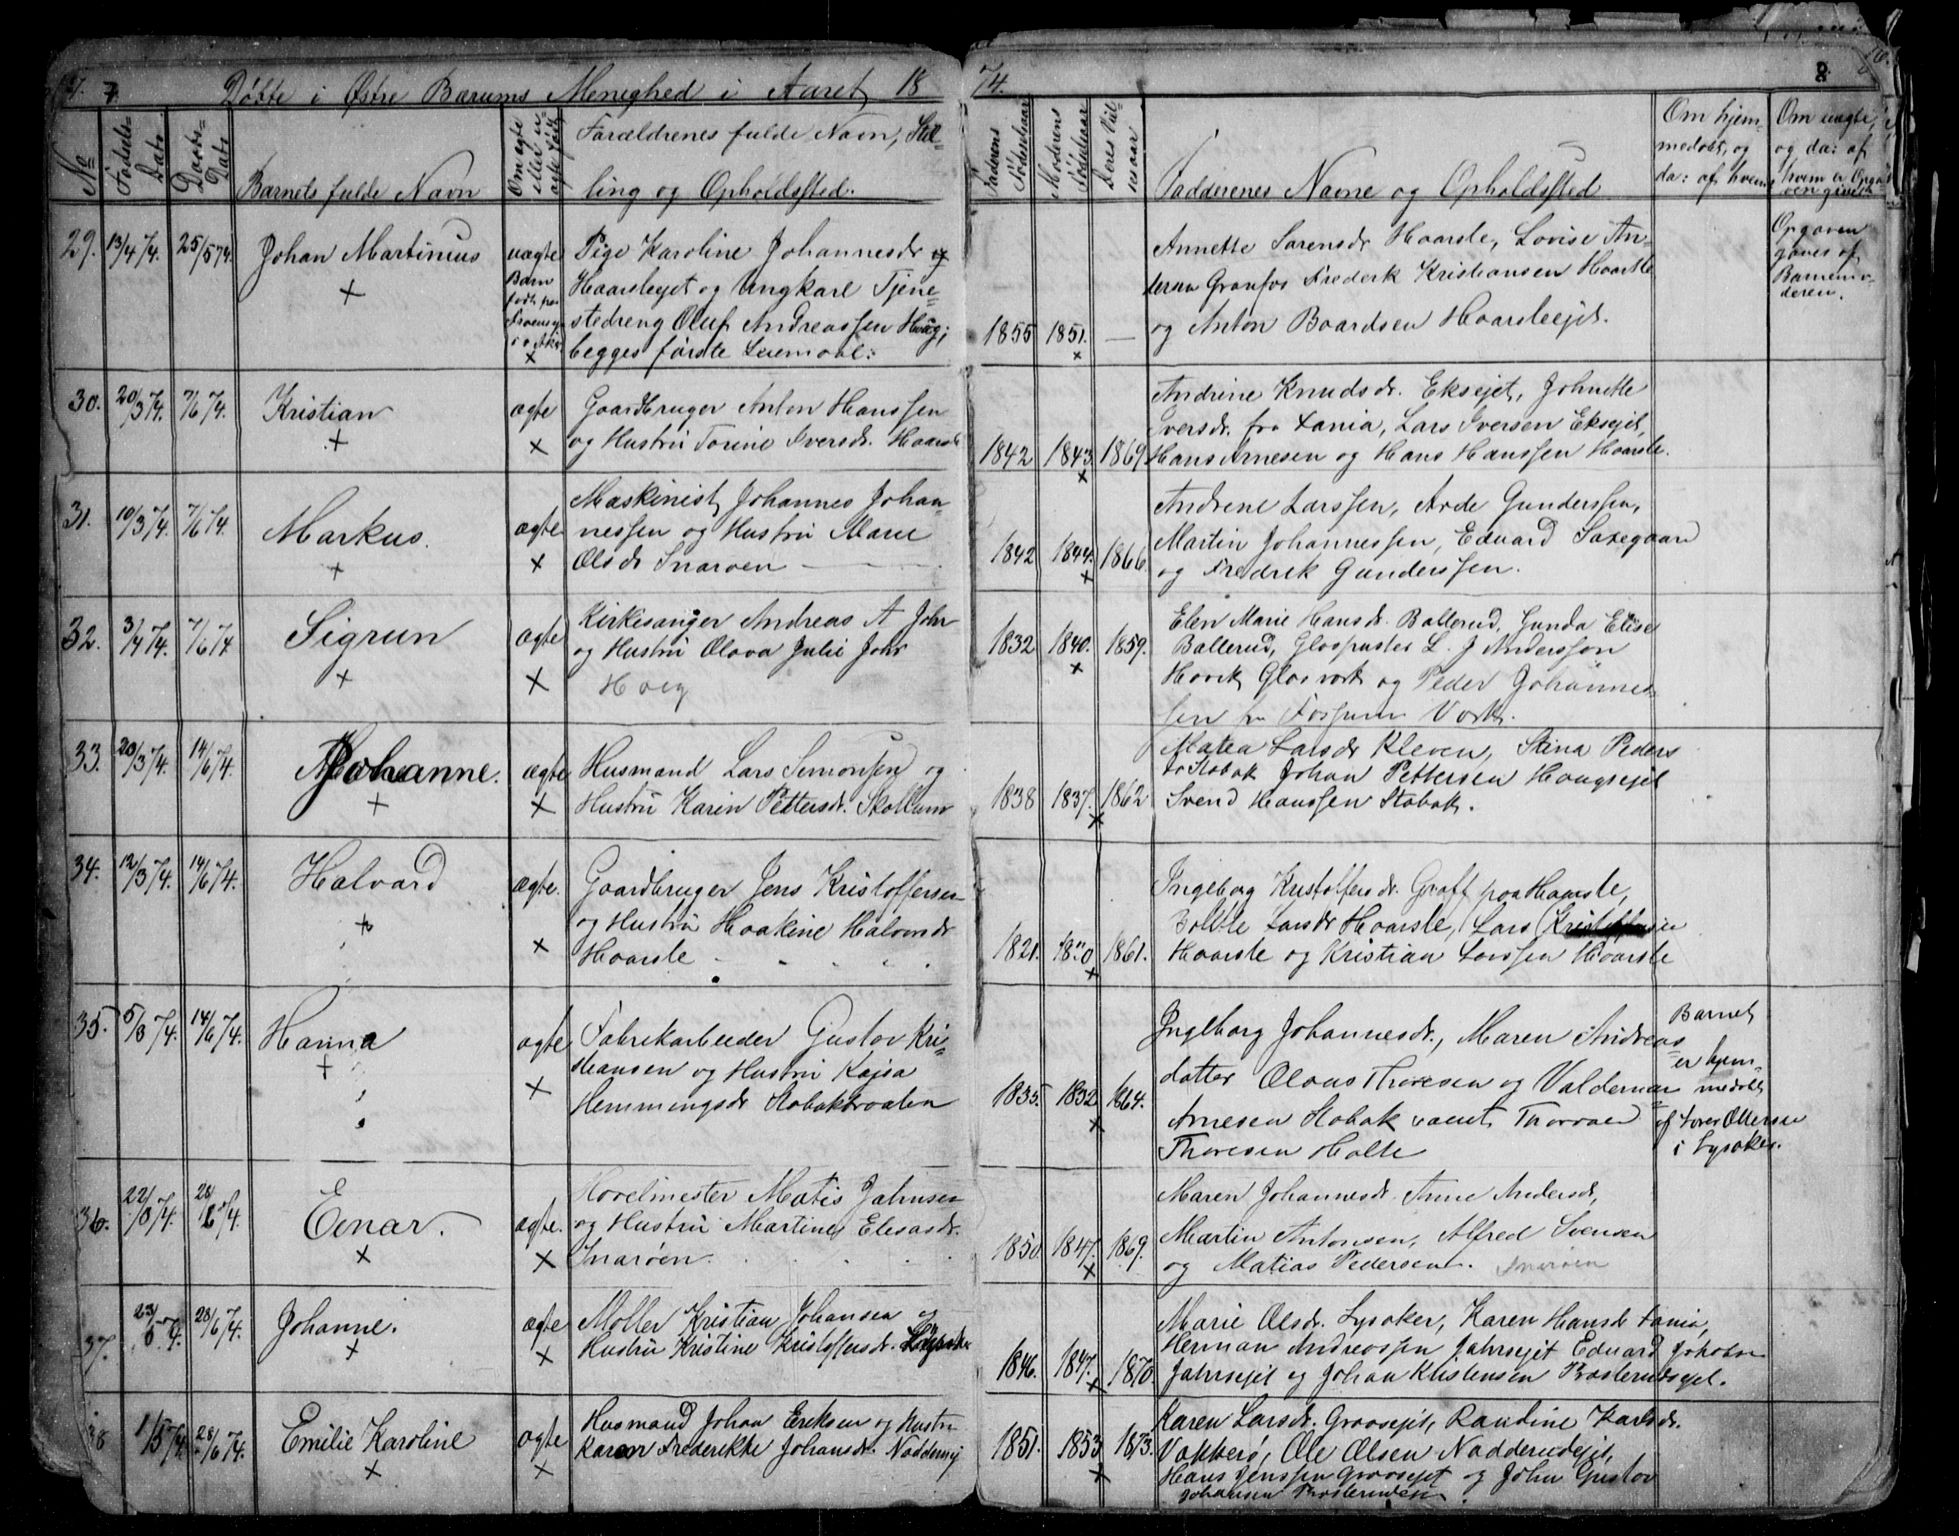 7. Døbte i Østre Bærums Menighed i Aaret 18
74. 8.
No
Fødsels-
Dato
Daabs-
Dato
Barnets fulde Navn
Om ægte
eller u-
ægte født
Forældrenes fulde Navn, Stil-
ling og Opholdssted.
Faderens
Fødselsaar
Moderens
Fødselsaar
Deres Vil-
sesaar
Faddernes Navne og Opholdssted
Om hjem-
medøbt, og
da: af hvem
Om uægte,
og da: af
hvem er Opga-
ven given
29. 13/4 74. 25/5 74. Johan Martinius
uægte
Barn
født paa
Pige Karoline Johannesdr
Haarslejet og Ungkarl Tjene-
stedreng Oluf Andreassen Haug;
begges første Leiermaal:
1855 1851. —
Annette Sørensdr. Haarsle, Lovise An-
dersen Granfos Frederk Kristiansen Haarsle
og Anton Baardsen Haarsleejet.
Opgaven
gaves af
Barnemo-
deren.
30. 20/3 74. 7/6 74. Kristian
ægte
Gaardbruger Anton Hanssen
og Hustru Torine Iversdr. Haarsle
1842 1843. 1869.
Andrine Knudsdr. Eksejet, Johnette
Iversdr. fra Fania, Lars Iversen Eksejet,
Hans Arnesen og Hans Hanssen Haarsle.
31. 10/3 74. 7/6 74. Markus.
ægte
Maskinist Johannes Johan-
nessen og Hustru Marie
Olsdr Snarøen
1842 1844. 1866.
Andrene Larssen, Arde Gunderssen,
Martin Johannessen, Eduard Saxegaard
og Fredrik Gunderssen.
32. 3/4 74. 7/6 74 Sigrun
ægte
Kirkesanger Andreas A Johr
og Hustru Olava Julie Johr
Haug
1832 1840. 1859.
Elen Marie Hansdr. Ballerud, Gunda Elise
Ballerud, Glaspuster L. J Anderssøn
Høvik Glasværk og Peder Johannes-
sen fra Fossum Værk.
33. 20/3 74. 14/6 74. Johanne.
ægte
Husmand Lars Simonsen og
Hustru Karin Pettersdr. Skallum
1838 1837. 1862
Matea Larsdr Kleven, Stina Peders
dr Stabæk Johan Pettersen Haugsejet
Svend Hanssen Stabæk.
34. 12/3 74. 14/6 74. Halvard
ægte.
Gaardbruger Jens Kristoffersen
og Hustru Haakine Halvorsdr
Haarsle
1821. 1861.
Ingeborg Kristoffersdr. Graff paa Haarsle,
Larsdr Haarsle, Lars Kristoffersen
Haarsle og Kristian Larssen Haarsle
35. 5/3 74. 14/6 74. Hanna
ægte
Fabrikarbeider Gustav Kri-
stiansen og Hustru Kajsa
Hemmingsdr Stabæktraaten
1835. 1832 1864.
Ingeborg Johannesdr., Maren Andreas-
datter Olaus Thoresen og Valdemar
Arnesen Stabæk samt Thorvald
Thoresen Holte
Barnet
er hjem-
medøbt
af Tover Ottersen
i Lysaker.
36. 22/3 74. 28/6 74. Einar.
ægte.
Høvelmester Matis Jahnsen
og Hustru Martine Eliasdr.
Snarøen.
1850. 1847. 1869.
Maren Johannesdr. Anne Andersdr,
Martin Antonsen, Alfred Svensen
og Matias Pedersen. Snarøen
37. 23/5 74. 28/6 74. Johanne.
ægte
Møller Kristian Johansen og
Hustru Kristine Kristoffersdr. Lysaker
1846. 1847. 1870.
Marie Olsdr. Lysaker, Karen Hansdr Fania,
Herman Andreassen Jahrsejet Eduard Johnsen
Jahrsejet og Johan Kristensen Prosterudsejet.
38 1/5 74. 28/6 74. Emilie Karoline
ægte
Husmand Johan Eriksen og Hustru
Karen Frederikke Johansdr. Nadderudej
1851. 1853 1873.
Karen Larsdr. Gravsejet, Randine Karlsdr.
Vækkerø, Ole Olsen Nadderudejet,
Hans Jenssen Gravsejet og John Gustav
Johansen Prosterudsejet